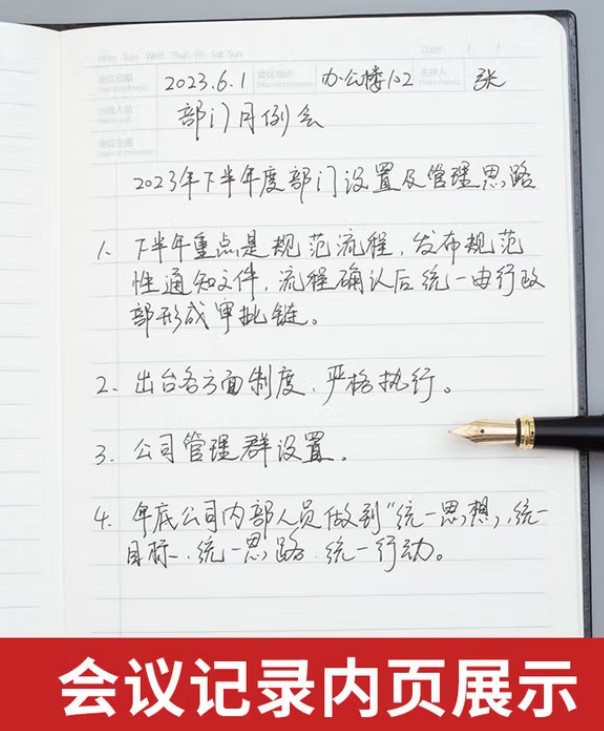 Mon Tue Wed Thu Fri Sat Sun Date: / /
会议日期 2023.6.1 会议地点 办公楼102 主持人 张
出席人员 部门月例会
会议主题
2023年下半年度部门设置及管理思路
1. 下半年重点是规范流程，发布规范
性通知文件，流程确认后统一由行政
部形成审批链。
2. 出台各方面制度、严格执行。
3. 公司管理群设置。
4. 年底公司内部人员做到“统一思想，统一
目标、统一思路、统一行动。
会议记录内页展示